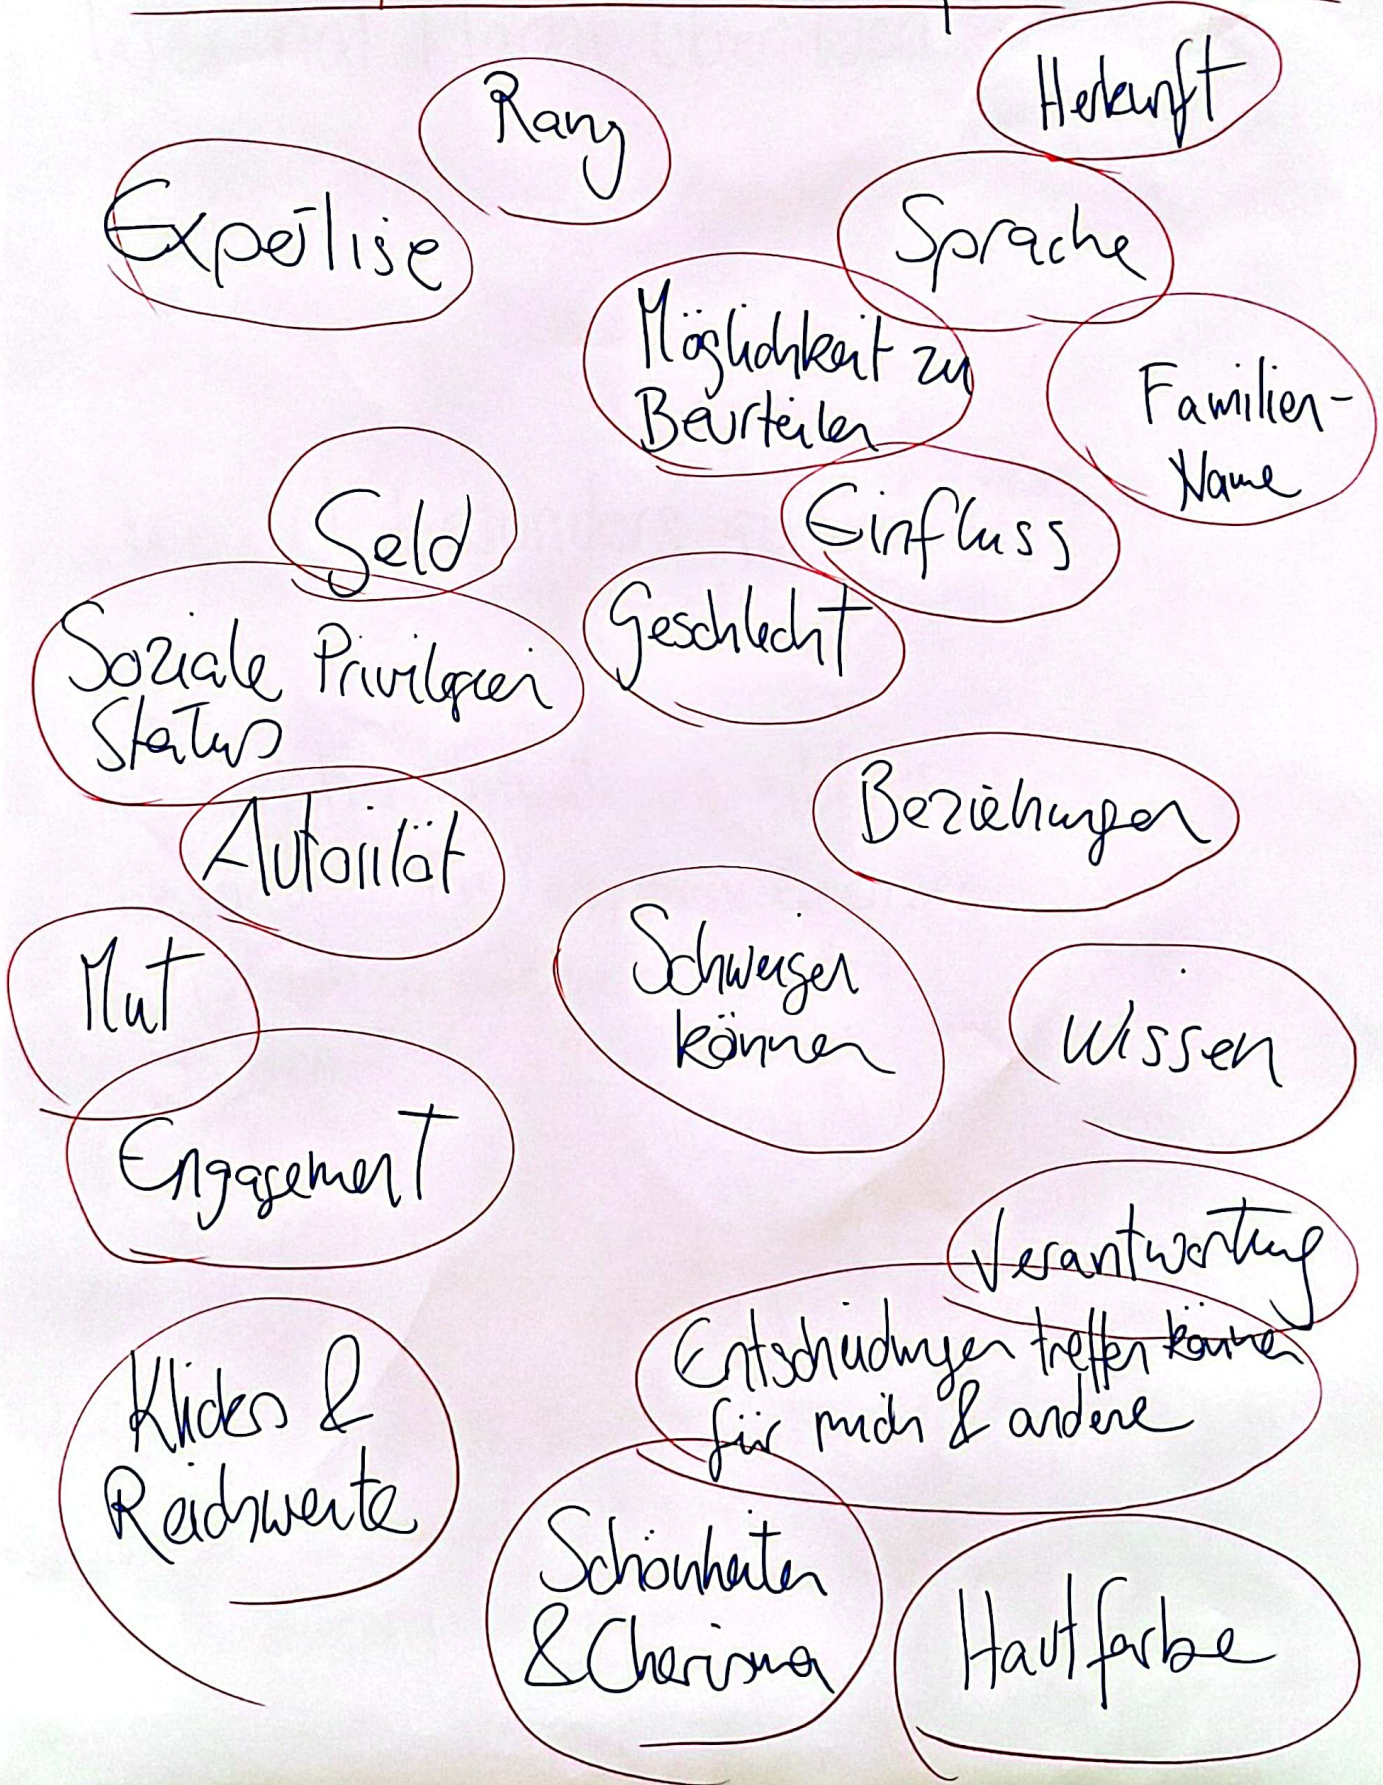 Herkunft
Rang
Expertise
Sprache
Möglichkeit zu
Beurteilen
Familien-
Name
Geld
Einfluss
Geschlecht
Soziale Privilegien
Status
Beziehungen
Autorität
Schweigen
können
Mut
Wissen
Engagement
Verantwortung
Entscheidungen treffen können
für mich & andere
Klicks &
Reichweite
Schönheiten
& Charisma
Hautfarbe